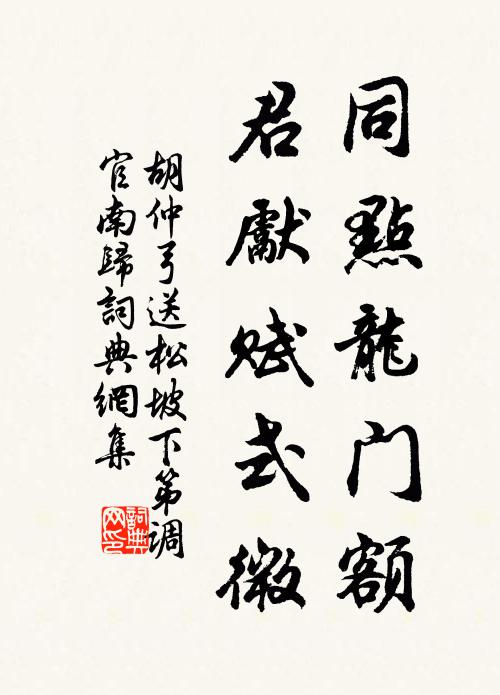 同點龍门額
君獻賦式微
胡仲弓送松坡下第調
官南歸詞典網集
詞典网印